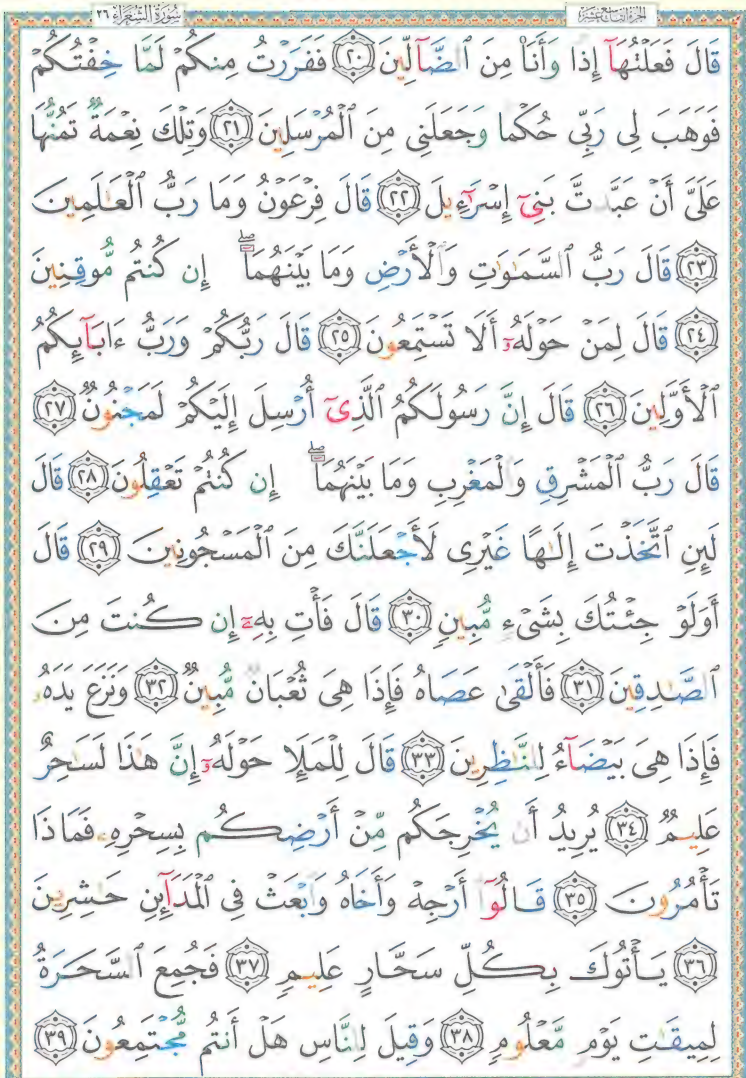 سُورَةُ الشُّعَرَاءِ ٢٦ الجزء التاسع عشر
قَالَ فَعَلْتُهَآ إِذًا وَأَنَا۠ مِنَ ٱلضَّآلِّينَ ٢٠ فَفَرَرْتُ مِنكُمْ لَمَّا خِفْتُكُمْ
فَوَهَبَ لِى رَبِّى حُكْمًا وَجَعَلَنِى مِنَ ٱلْمُرْسَلِينَ ٢١ وَتِلْكَ نِعْمَةٌ تَمُنُّهَا
عَلَىَّ أَنْ عَبَّدتَّ بَنِىٓ إِسْرَٰٓءِيلَ ٢٢ قَالَ فِرْعَوْنُ وَمَا رَبُّ ٱلْعَٰلَمِينَ
٢٣ قَالَ رَبُّ ٱلسَّمَٰوَٰتِ وَٱلْأَرْضِ وَمَا بَيْنَهُمَآ ۖ إِن كُنتُم مُّوقِنِينَ
٢٤ قَالَ لِمَنْ حَوْلَهُۥٓ أَلَا تَسْتَمِعُونَ ٢٥ قَالَ رَبُّكُمْ وَرَبُّ ءَابَآئِكُمُ
ٱلْأَوَّلِينَ ٢٦ قَالَ إِنَّ رَسُولَكُمُ ٱلَّذِىٓ أُرْسِلَ إِلَيْكُمْ لَمَجْنُونٌ ٢٧
قَالَ رَبُّ ٱلْمَشْرِقِ وَٱلْمَغْرِبِ وَمَا بَيْنَهُمَآ ۖ إِن كُنتُمْ تَعْقِلُونَ ٢٨ قَالَ
لَئِنِ ٱتَّخَذْتَ إِلَٰهًا غَيْرِى لَأَجْعَلَنَّكَ مِنَ ٱلْمَسْجُونِينَ ٢٩ قَالَ
أَوَلَوْ جِئْتُكَ بِشَىْءٍ مُّبِينٍ ٣٠ قَالَ فَأْتِ بِهِۦٓ إِن كُنتَ مِنَ
ٱلصَّٰدِقِينَ ٣١ فَأَلْقَىٰ عَصَاهُ فَإِذَا هِىَ ثُعْبَانٌ مُّبِينٌ ٣٢ وَنَزَعَ يَدَهُۥ
فَإِذَا هِىَ بَيْضَآءُ لِلنَّٰظِرِينَ ٣٣ قَالَ لِلْمَلَإِ حَوْلَهُۥٓ إِنَّ هَٰذَا لَسَٰحِرٌ
عَلِيمٌ ٣٤ يُرِيدُ أَن يُخْرِجَكُم مِّنْ أَرْضِكُم بِسِحْرِهِۦ فَمَاذَا
تَأْمُرُونَ ٣٥ قَالُوٓا۟ أَرْجِهْ وَأَخَاهُ وَٱبْعَثْ فِى ٱلْمَدَآئِنِ حَٰشِرِينَ
٣٦ يَأْتُوكَ بِكُلِّ سَحَّارٍ عَلِيمٍ ٣٧ فَجُمِعَ ٱلسَّحَرَةُ
لِمِيقَٰتِ يَوْمٍ مَّعْلُومٍ ٣٨ وَقِيلَ لِلنَّاسِ هَلْ أَنتُم مُّجْتَمِعُونَ ٣٩